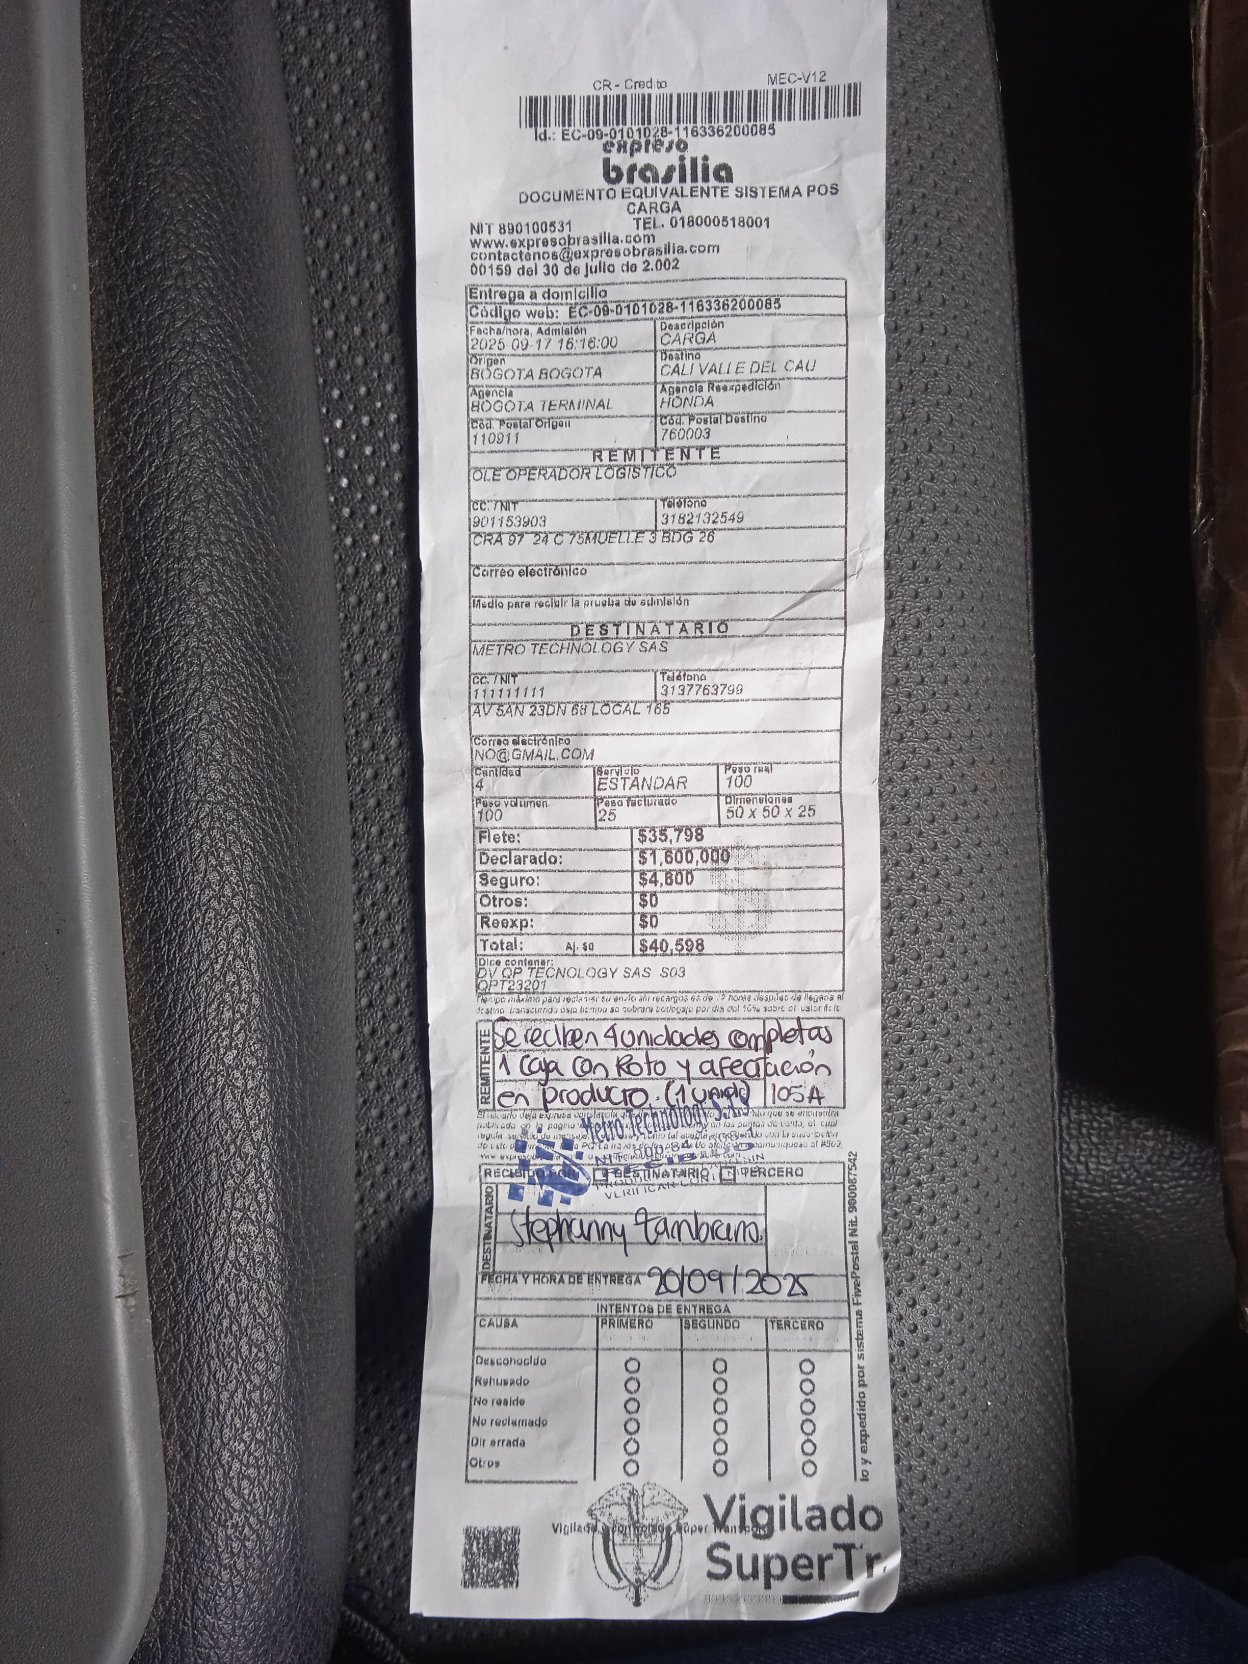 CR - Credito MEC-V12
Id.: EC-09-0101028-116336200085
expreso
brasilia
DOCUMENTO EQUIVALENTE SISTEMA POS
CARGA
NIT 890100531 TEL. 018000518001
www.expresobrasilia.com
contactenos@expresobrasilia.com
00159 del 30 de julio de 2.002
Entrega a domicilio
Código web: EC-09-0101028-116336200085
Fecha/hora, Admisión Descripción
2025-09-17 16:16:00 CARGA
Origen Destino
BOGOTA BOGOTA CALI VALLE DEL CAU
Agencia Agencia Reexpedición
BOGOTA TERMINAL HONDA
Cód. Postal Origen Cód. Postal Destino
110911 760003
REMITENTE
OLE OPERADOR LOGISTICO
CC. / NIT Teléfono
901153903 3182132549
CRA 97 24 C 75MUELLE 3 BDG 26
Correo electrónico
Medio para recibir la prueba de admisión
DESTINATARIO
METRO TECHNOLOGY SAS
CC. / NIT Teléfono
111111111 3137763799
AV 5AN 23DN 68 LOCAL 165
Correo electrónico
NO@GMAIL.COM
Cantidad Servicio Peso real
4 ESTANDAR 100
Peso volumen Peso facturado Dimensiones
100 25 50 x 50 x 25
Flete: $35,798
Declarado: $1,600,000
Seguro: $4,800
Otros: $0
Reexp: $0
Total: Aj. $0 $40,598
Dice contener:
DV QP TECNOLOGY SAS S03
QPT23201
Tiempo máximo para reclamar su envío sin recargos es de 72 horas después de llegada al
destino, transcurrido este tiempo se cobrara bodegaje por día del 10% sobre el valor flete
REMITENTE
Se reciben 4 unidades completas
1 caja con Roto y afectación
en producto. (1 unidad) 105A
Metro Technology S.A.S
RECIBIDO
VERIFICAR
RECIBIDO DESTINATARIO TERCERO
DESTINATARIO
Stephanny Zambrano.
FECHA Y HORA DE ENTREGA 20/09/2025
INTENTOS DE ENTREGA
CAUSA PRIMERO SEGUNDO TERCERO
Desconocido
Rehusado
No reside
No reclamado
Dir errada
Otros
lo y expedido por sistema FivePostal Nit. 900087542
Vigilado
SuperTr